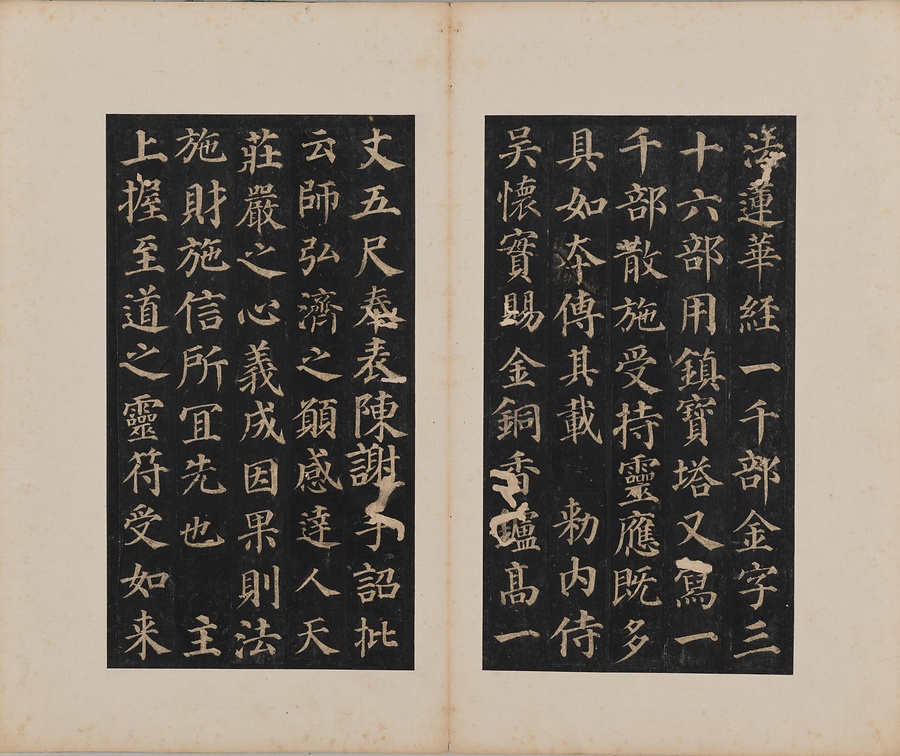 法蓮華経一千部金字三
十六部用鎮寶塔又寫一
千部散施受持靈應既多
具如夲傳其載　勑内侍
吴懷實賜金銅香鑪髙一
丈五尺奉表陳謝手詔批
云師弘濟之願感達人天
莊嚴之心義成因果則法
施財施信所冝先也　主
上握至道之靈符受如来